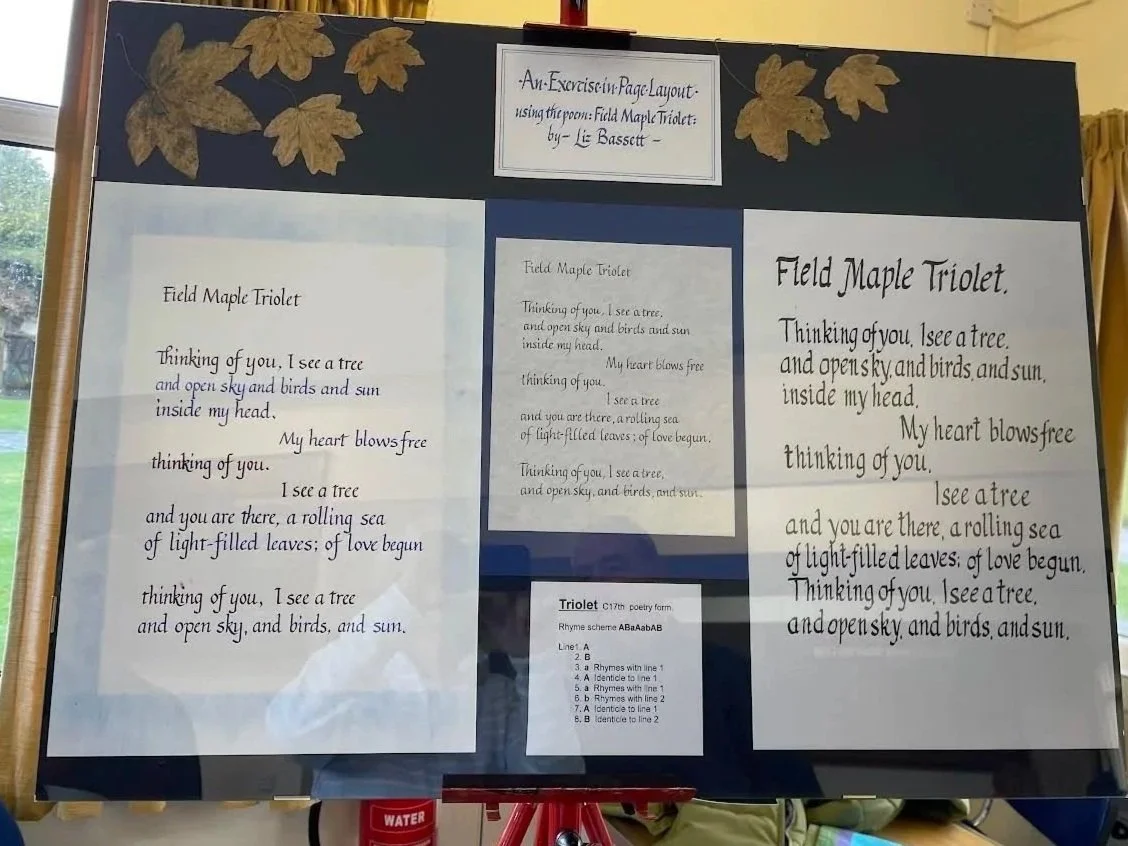 ·An·Exercise·in·Page·Layout·
using the poem: Field Maple Triolet:
by – Liz Bassett –
Field Maple Triolet
Thinking of you, I see a tree
and open sky and birds and sun
inside my head.
My heart blows free
thinking of you.
I see a tree
and you are there, a rolling sea
of light-filled leaves; of love begun
thinking of you, I see a tree
and open sky, and birds, and sun.
Field Maple Triolet
Thinking of you, I see a tree,
and open sky and birds and sun
inside my head.
My heart blows free
thinking of you.
I see a tree
and you are there, a rolling sea
of light-filled leaves; of love begun.
Thinking of you, I see a tree,
and open sky, and birds, and sun.
Triolet C17th poetry form.
Rhyme scheme ABaAabAB
Line1. A
2. B
3. a Rhymes with line 1
4. A Identicle to line 1
5. a Rhymes with line 1
6. b Rhymes with line 2
7. A Identicle to line 1
8. B Identicle to line 2
Field Maple Triolet.
Thinking of you, I see a tree,
and open sky, and birds, and sun,
inside my head.
My heart blows free
thinking of you.
I see a tree
and you are there, a rolling sea
of light-filled leaves; of love begun.
Thinking of you, I see a tree,
and open sky, and birds, and sun.
WATER